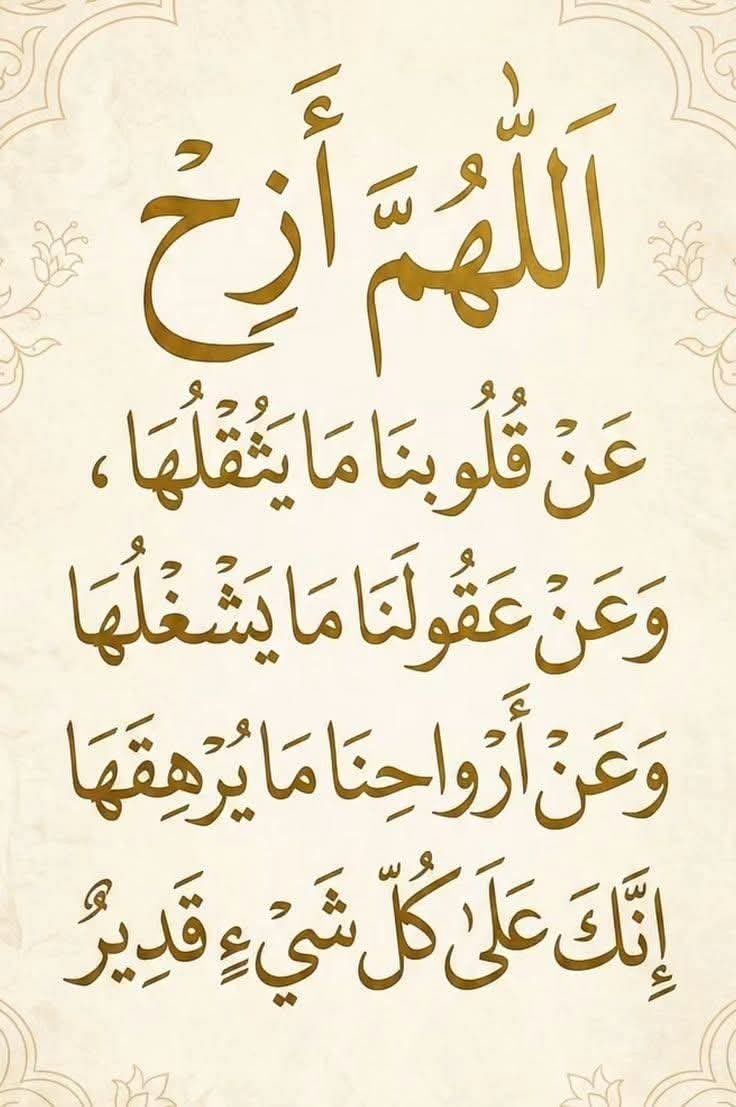 اَللّٰهُمَّ أَزِحْ
عَنْ قُلُوبنَا مَا يَثْقُلُهَا ،
وَعَنْ عَقُولَنَا مَا يَشْغْلُهَا
وَعَنْ أَرْواحِنَا مَا يُرْهِقَهَا
إِنَّكَ عَلَىٰ كُلّ شَيْءٍ قَدِيرٌ